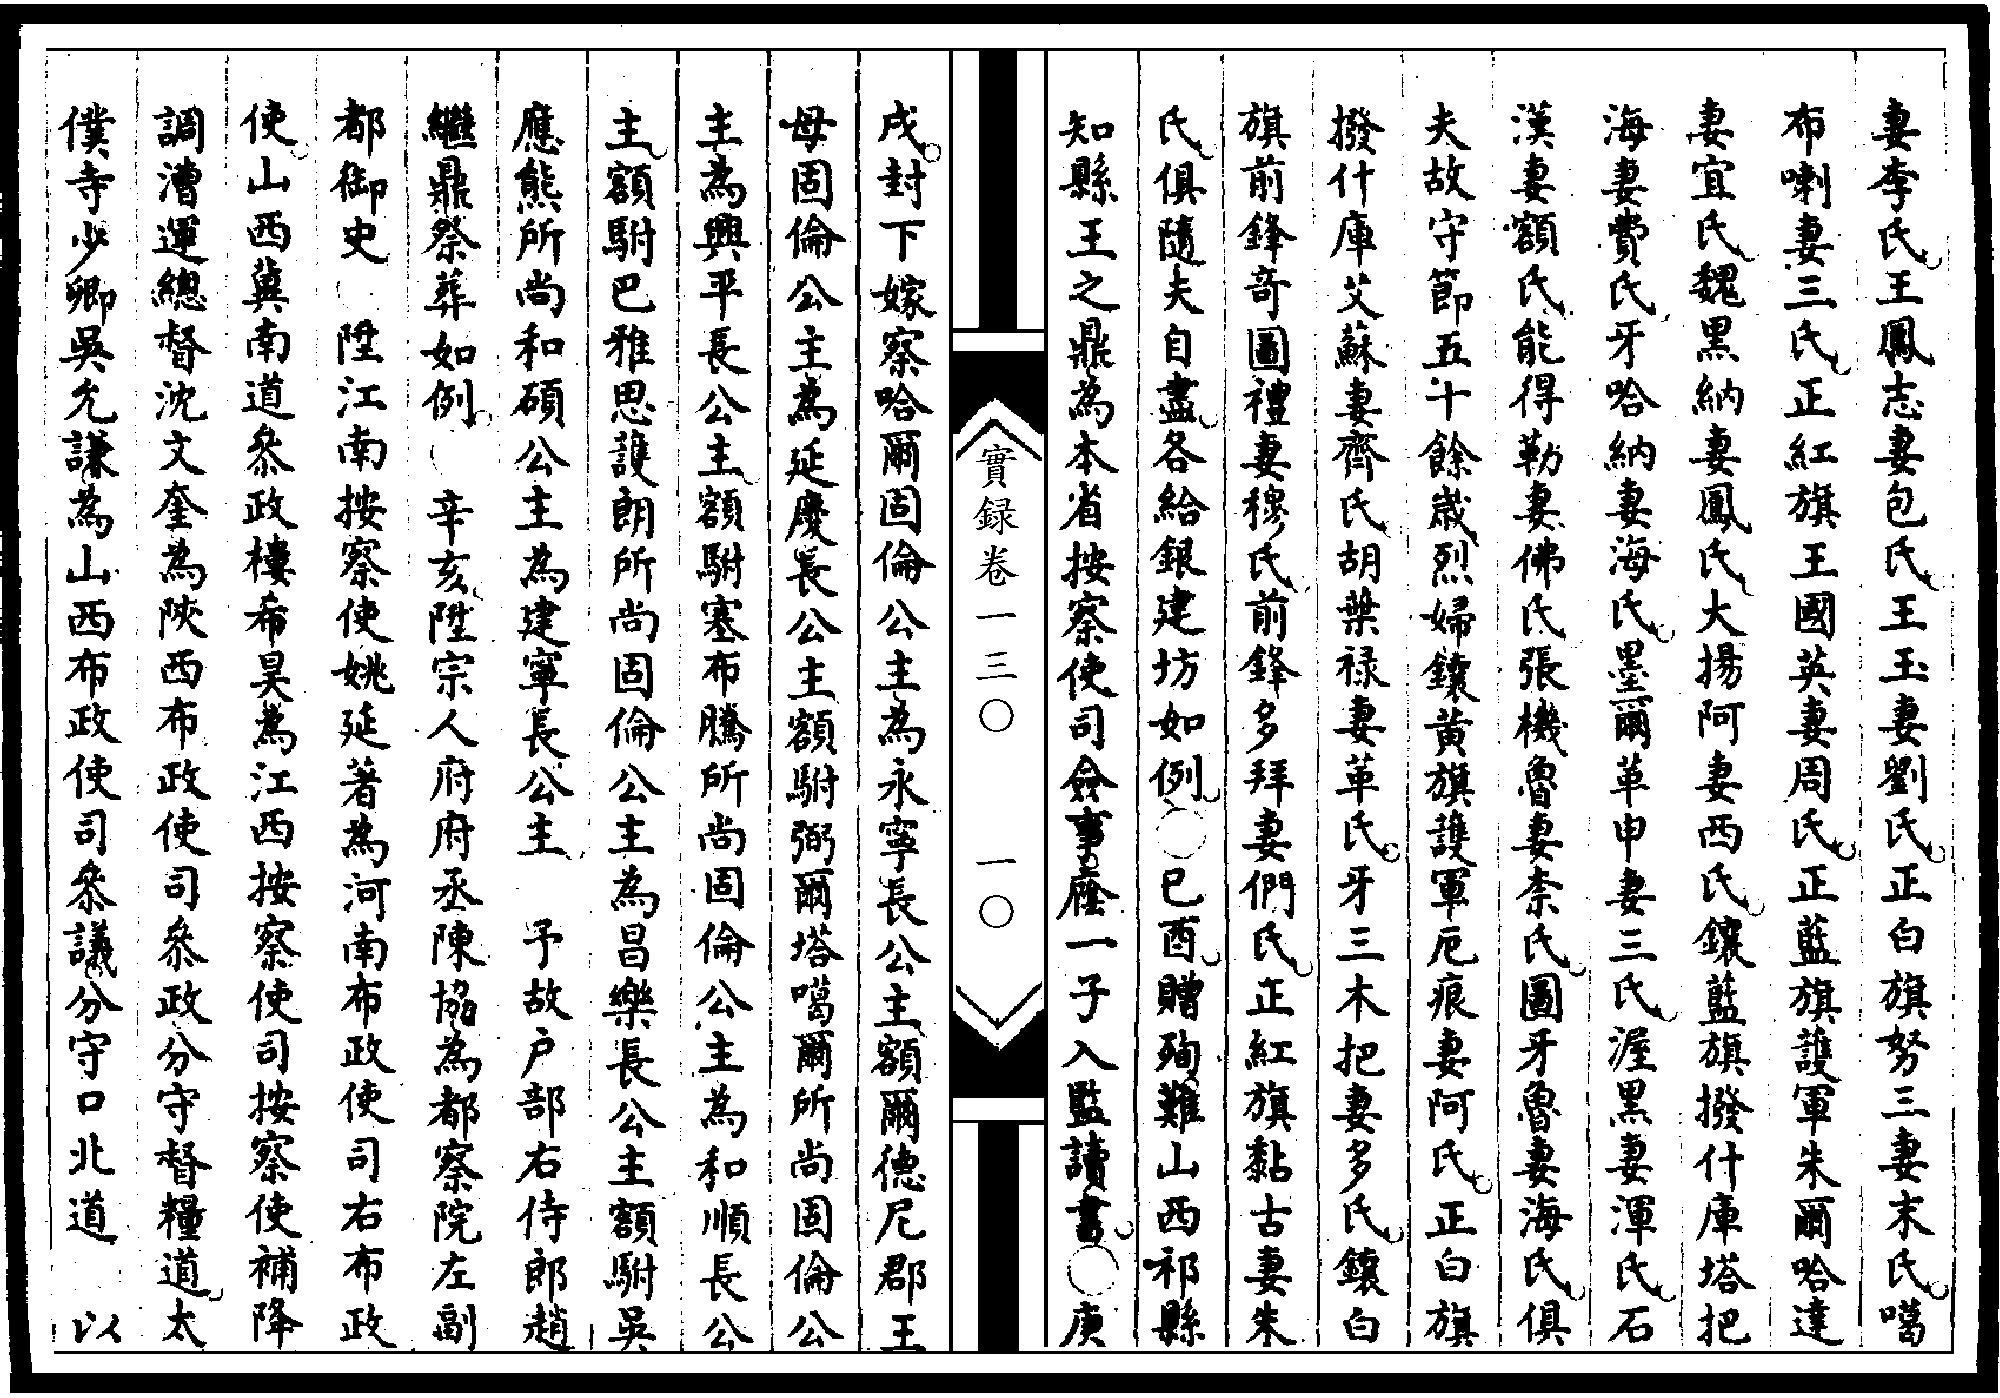 妻李氏王鳳志妻包氏王玉妻劉氏正白旗努三妻末氏噶
布喇妻三氏正紅旗王國英妻周氏正藍旗護軍朱爾哈達
妻宜氏魏黑納妻鳳氏大揚阿妻西氏鑲藍旗撥什庫塔把
海妻費氏牙哈納妻海氏墨爾革申妻三氏渥黑妻渾氏石
漢妻額氏能得勒妻佛氏張機魯妻柰氏圖牙魯妻海氏俱
夫故守節五十餘歲烈婦鑲黃旗護軍厄痕妻阿氏正白旗
撥什庫艾蘇妻齊氏胡葉祿妻革氏牙三木把妻多氏鑲白
旗前鋒奇圖禮妻穆氏前鋒多拜妻們氏正紅旗黏古妻朱
氏俱隨夫自盡各給銀建坊如例○己酉贈殉難山西祁縣
知縣王之鼎為本省按察使司僉事廕一子入監讀書○庚
實録卷一三〇 一〇
戌封下嫁察哈爾固倫公主為永寧長公主額爾德尼郡王
母固倫公主為延慶長公主額駙弼爾塔噶爾所尚固倫公
主為興平長公主額駙塞布騰所尚固倫公主為和順長公
主額駙巴雅思護朗所尚固倫公主為昌樂長公主額駙吳
應熊所尚和碩公主為建寧長公主 予故戶部右侍郎趙
繼鼎祭葬如例○辛亥陞宗人府府丞陳協為都察院左副
都御史 陞江南按察使姚延著為河南布政使司右布政
使山西冀南道叅政樓希昊為江西按察使司按察使補降
調漕運總督沈文奎為陝西布政使司叅政分守督糧道太
僕寺少卿吳允謙為山西布政使司叅議分守口北道 以